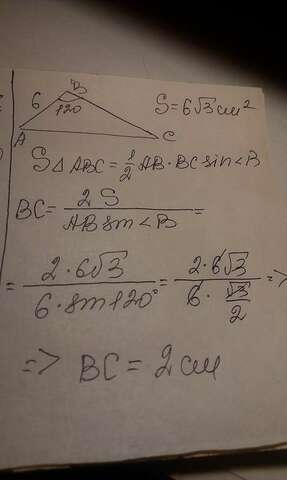 B
6
120
S=6√3 см²
A
C
S△ABC=½AB·BC sin∠B
BC= 2S / AB sin∠B =
= 2·6√3 / 6·sin120° = 2·6√3 / 6·√3/2 =>
=> BC = 2 см